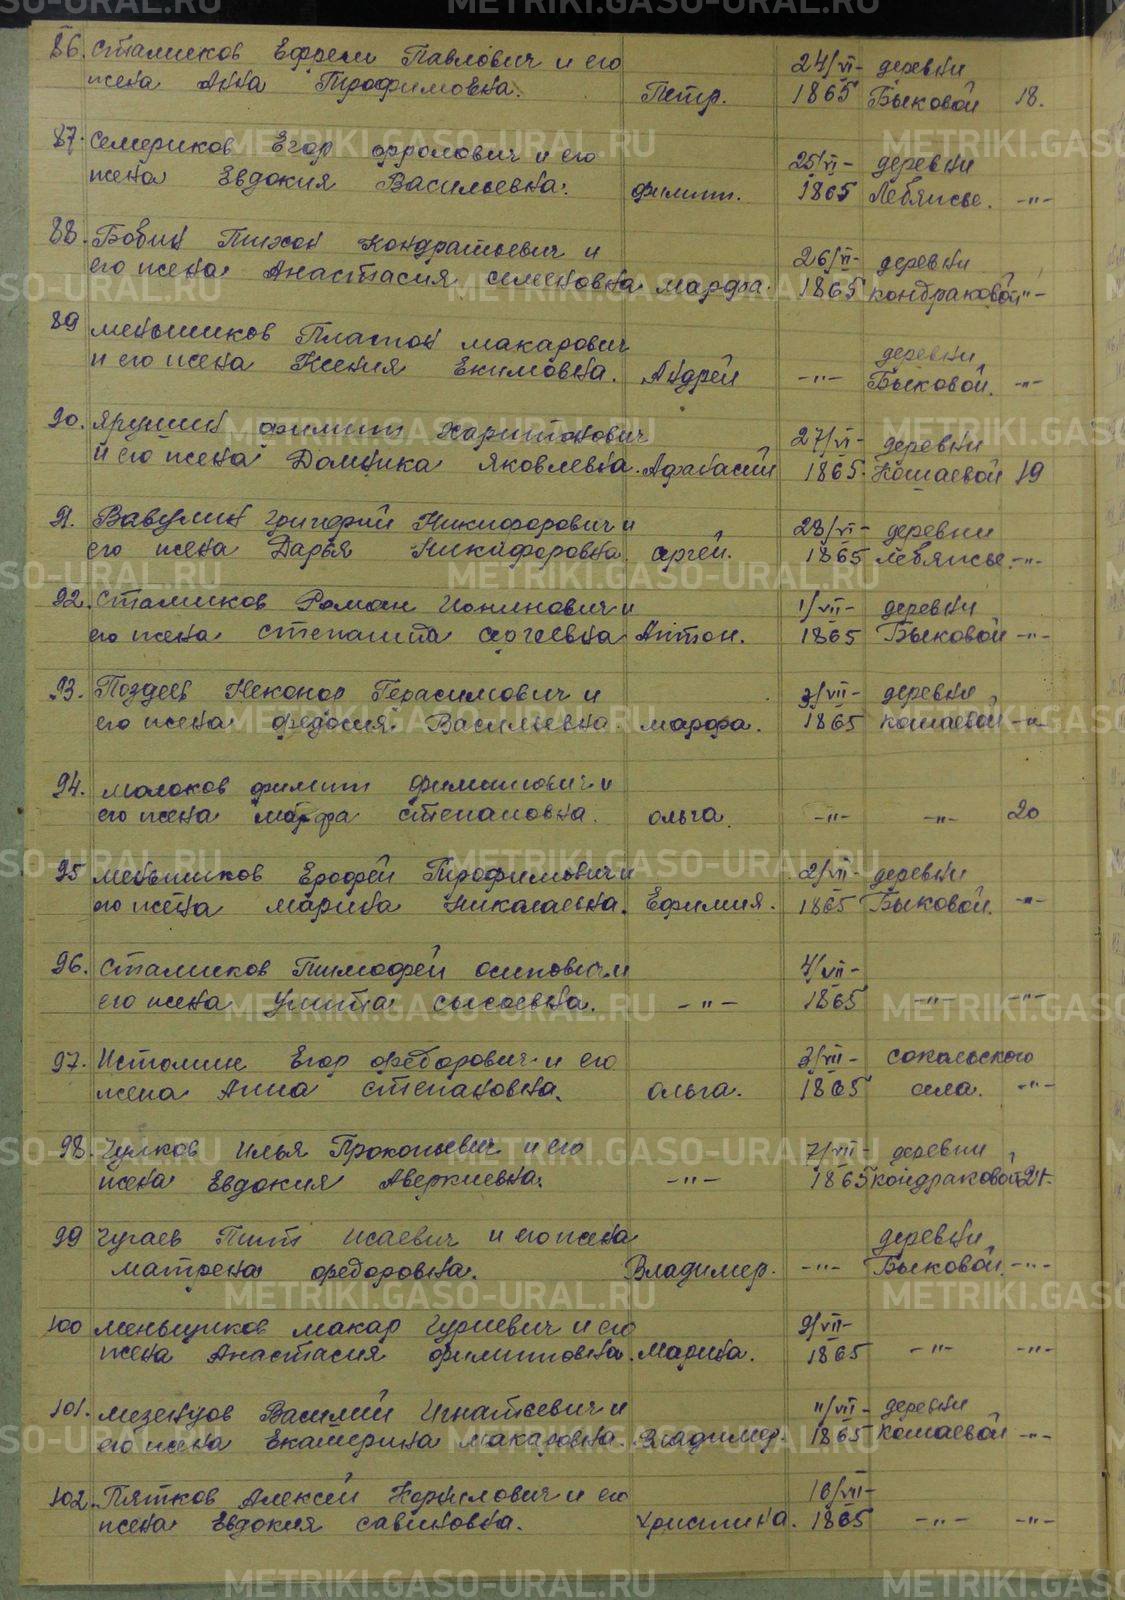 86. Сталиков Ефрем Павлович и его
жена Анна Трофимовна. Петр. 24/VI- 1865 деревни Быковой 18.
87. Семериков Егор Фролович и его
жена Евдокия Васильевна. Филипп. 25/VI- 1865 деревни Лебяжье. -"-
88. Бобин Тихон Кондратьевич и
его жена Анастасия Семеновна Марфа. 26/VI- 1865 деревни Кондраковой -"-
89 Меньшиков Платон Макарович
и его жена Ксения Екимовна. Андрей -"- деревни Быковой. -"-
90. Ярушин Филипп Харитонович
и его жена Домника Яковлевна. Афанасий 27/VI- 1865. деревни Кошаевой 19
91. Вавулин Григорий Никифорович и
его жена Дарья Никифоровна. Сергей. 28/VI- 1865 деревни Лебяжье. -"-
92. Сталиков Роман Ионинович и
его жена Степанида Сергеевна Антон. 1/VII- 1865 деревни Быковой -"-
93. Поздеев Неконор Герасимович и
его жена Федосия Васильевна. Марфа. 3/VII- 1865 деревни Кошаевой -"-
94. Молоков Филипп Филиппович и
его жена Марфа Степановна. Ольга. -"- -"- 20
95 Меньшиков Ерофей Трофимович и
его жена Марина Николаевна. Ефимия. 2/VII- 1865 деревни Быковой. -"-
96. Сталиков Тимофей Осипович и
его жена Улита Сысоевна. -"- 4/VII- 1865 -"- -"-
97. Истомин Егор Федорович и его
жена Анна Степановна. Ольга. 3/VII- 1865 Сокольского села. -"-
98. Чулков Илья Прокопьевич и его
жена Евдокия Аверкиевна. -"- 7/VII- 1865 деревни Кондраковой 21.
99 Чугаев Тит Исаевич и его жена
Матрена Федоровна. Владимер. -"- деревни Быковой. -"-
100 Меньщиков Макар Гуриевич и его
жена Анастасия Филипповна. Марина. 9/VII- 1865 -"- -"-
101. Мезенцов Василий Игнатьевич и
его жена Екатерина Макаровна. Владимер. 11/VII- 1865 деревни Кошаевой -"-
102. Пятков Алексей Корнилович и его
жена Евдокия Савиновна. Христина. 16/VII- 1865 -"- -"-
METRIKI.GASO-URAL.RU